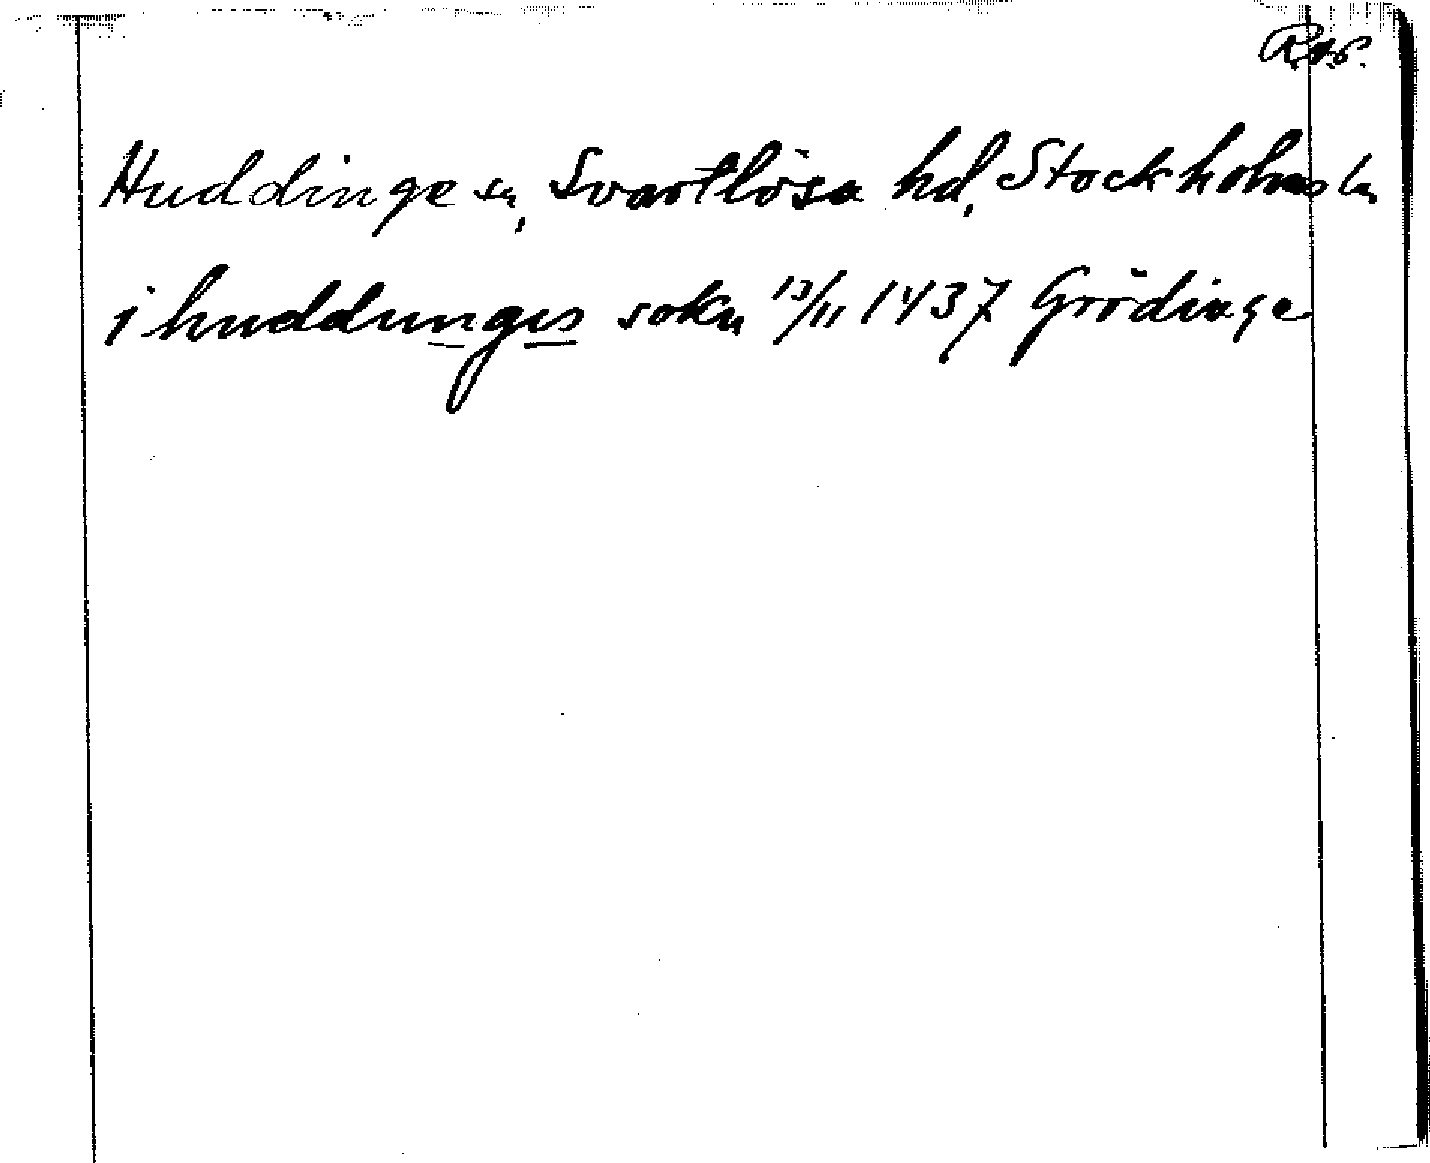 Huddinge sn, Svartlösa hd, Stockholms ln
i huddungis sokn 13/11 1437 Grödinge